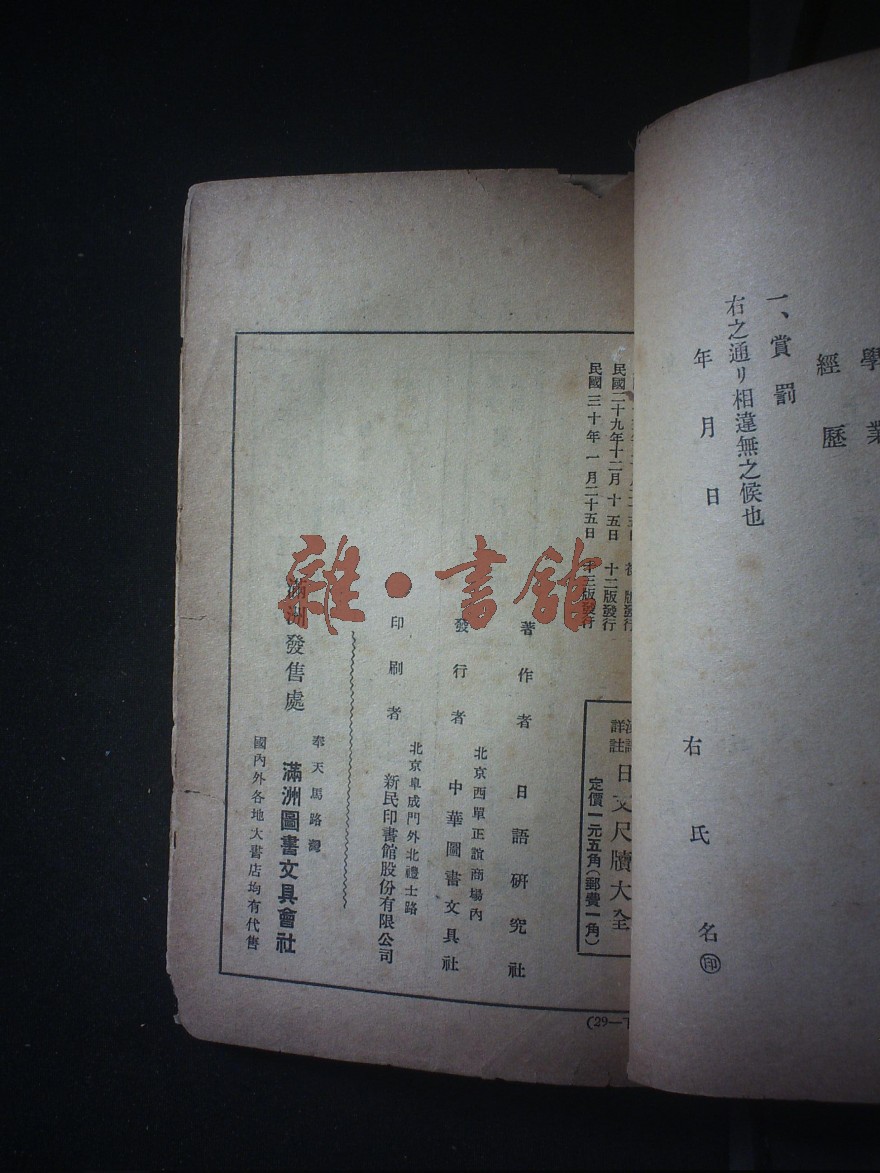 學業
經歷
一、賞罰
右之通リ相違無之候也
年月日
右氏名㊞
民國二十九年十二月十五日 十二版發行
民國三十年一月二十五日 十三版發行
詳註
日文尺牘大全
定價一元五角(郵費一角)
著作者 日語研究社
北京西單正誼商場內
發行者 中華圖書文具社
北京阜成門外北禮士路
印刷者 新民印書館股份有限公司
奉天馬路灣
滿洲發售處 滿洲圖書文具會社
國內外各地大書店均有代售
(29—
雜·書館